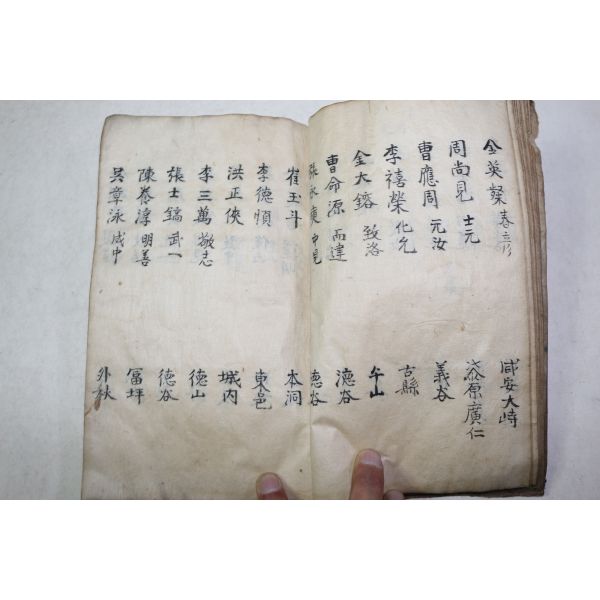 金英粲 春彭 咸安大峙
周尚見 士元 漆原廣仁
曹應周 元汝 義谷
李禧榮 化允 古縣
金大鎔 致洛 午山
曹命源 而達 德谷
張永東 中見 德谷
崔玉斗 本洞
李德順 東邑
洪正俠 城內
李三萬 敬志 德山
張士鎬 武一 德谷
陳泰淳 明善 冨坪
吳章泳 成中 外秋